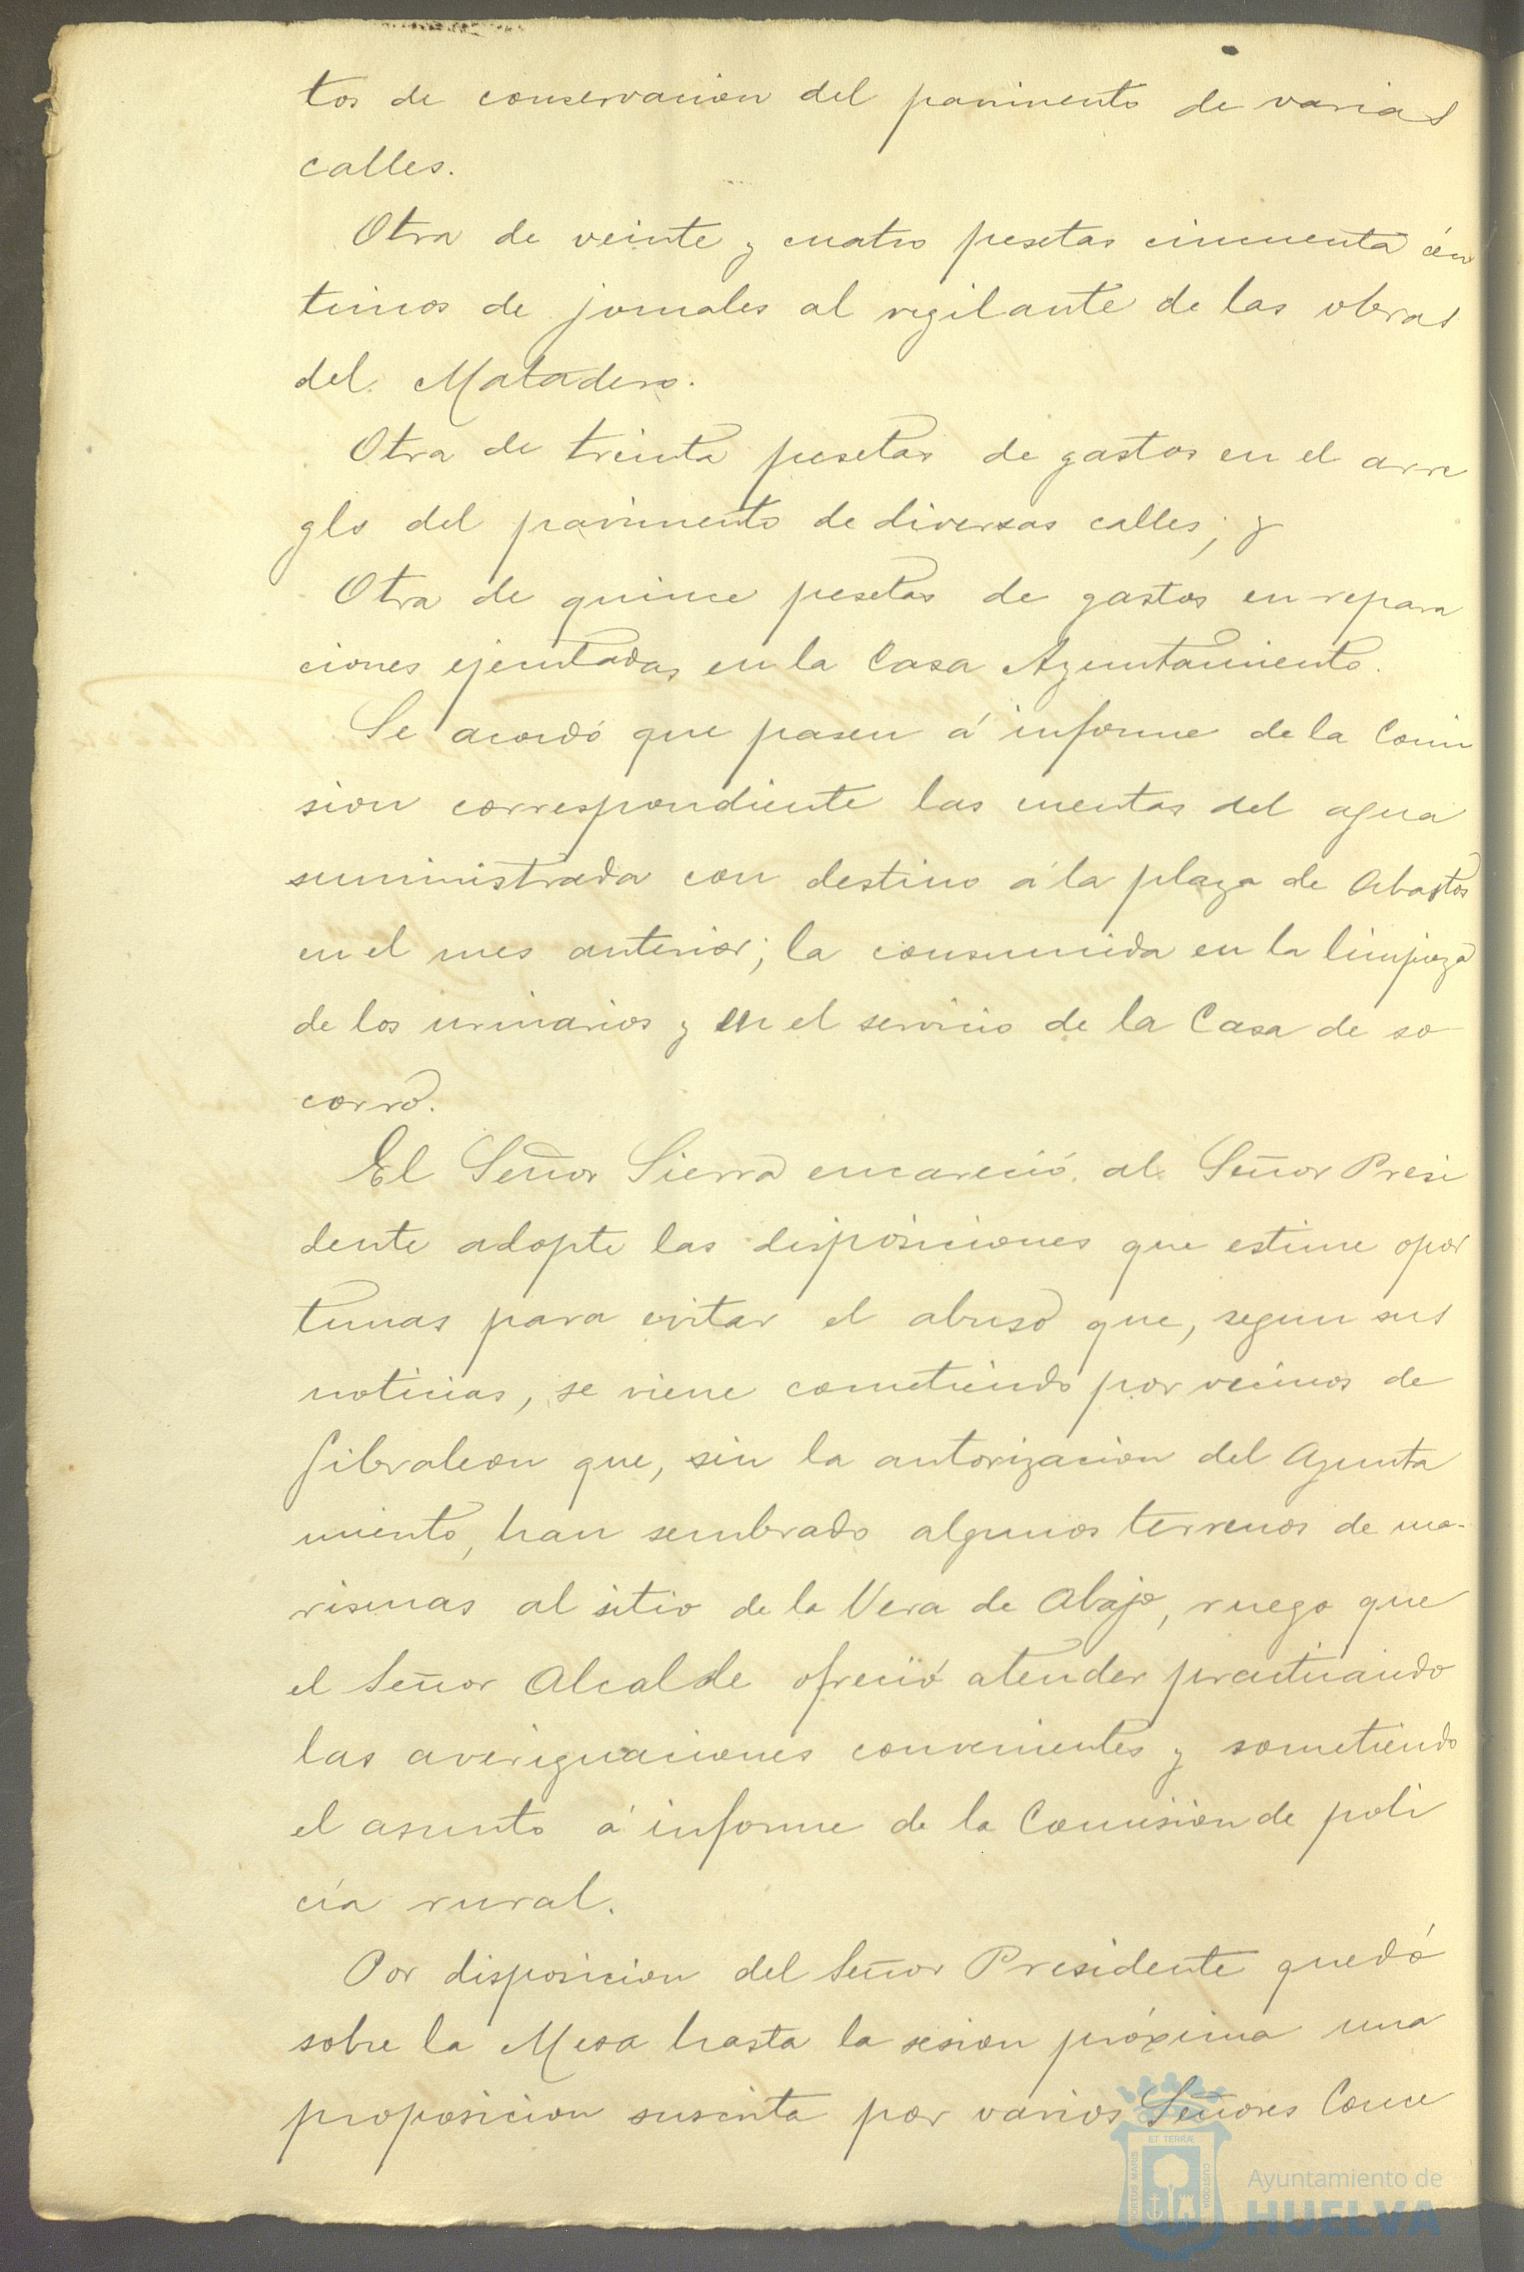 tos de conservacion del pavimento de varias
calles.
Otra de veinte y cuatro pesetas cincuenta cén
timos de jornales al vigilante de las obras
del Matadero.
Otra de treinta pesetas de gastos en el arre
glo del pavimento de diversas calles; y
Otra de quince pesetas de gastos en repara
ciones ejecutadas en la Casa Ayuntamiento.
Se acordó que pasen á informe de la Comi
sion correspondiente las cuentas del agua
suministrada con destino á la plaza de Abastos
en el mes anterior; la consumida en la limpieza
de los urinarios y en el servicio de la Casa de so
corro.
El Señor Sierra encareció al Señor Presi
dente adopte las disposiciones que estime opor
tunas para evitar el abuso que, segun sus
noticias, se viene cometiendo por vecinos de
Gibraleon que, sin la autorizacion del Ayunta
miento, han sembrado algunos terrenos de ma-
rismas al sitio de la Vera de Abajo, ruego que
el Señor Alcalde ofreció atender practicando
las averiguaciones convenientes y sometiendo
el asunto á informe de la Comision de poli
cía rural.
Por disposicion del Señor Presidente quedó
sobre la Mesa hasta la sesion próxima una
proposicion suscrita por varios Señores Conce
PORTUS MARIS ET TERRÆ CUSTODIA
Ayuntamiento de
HUELVA